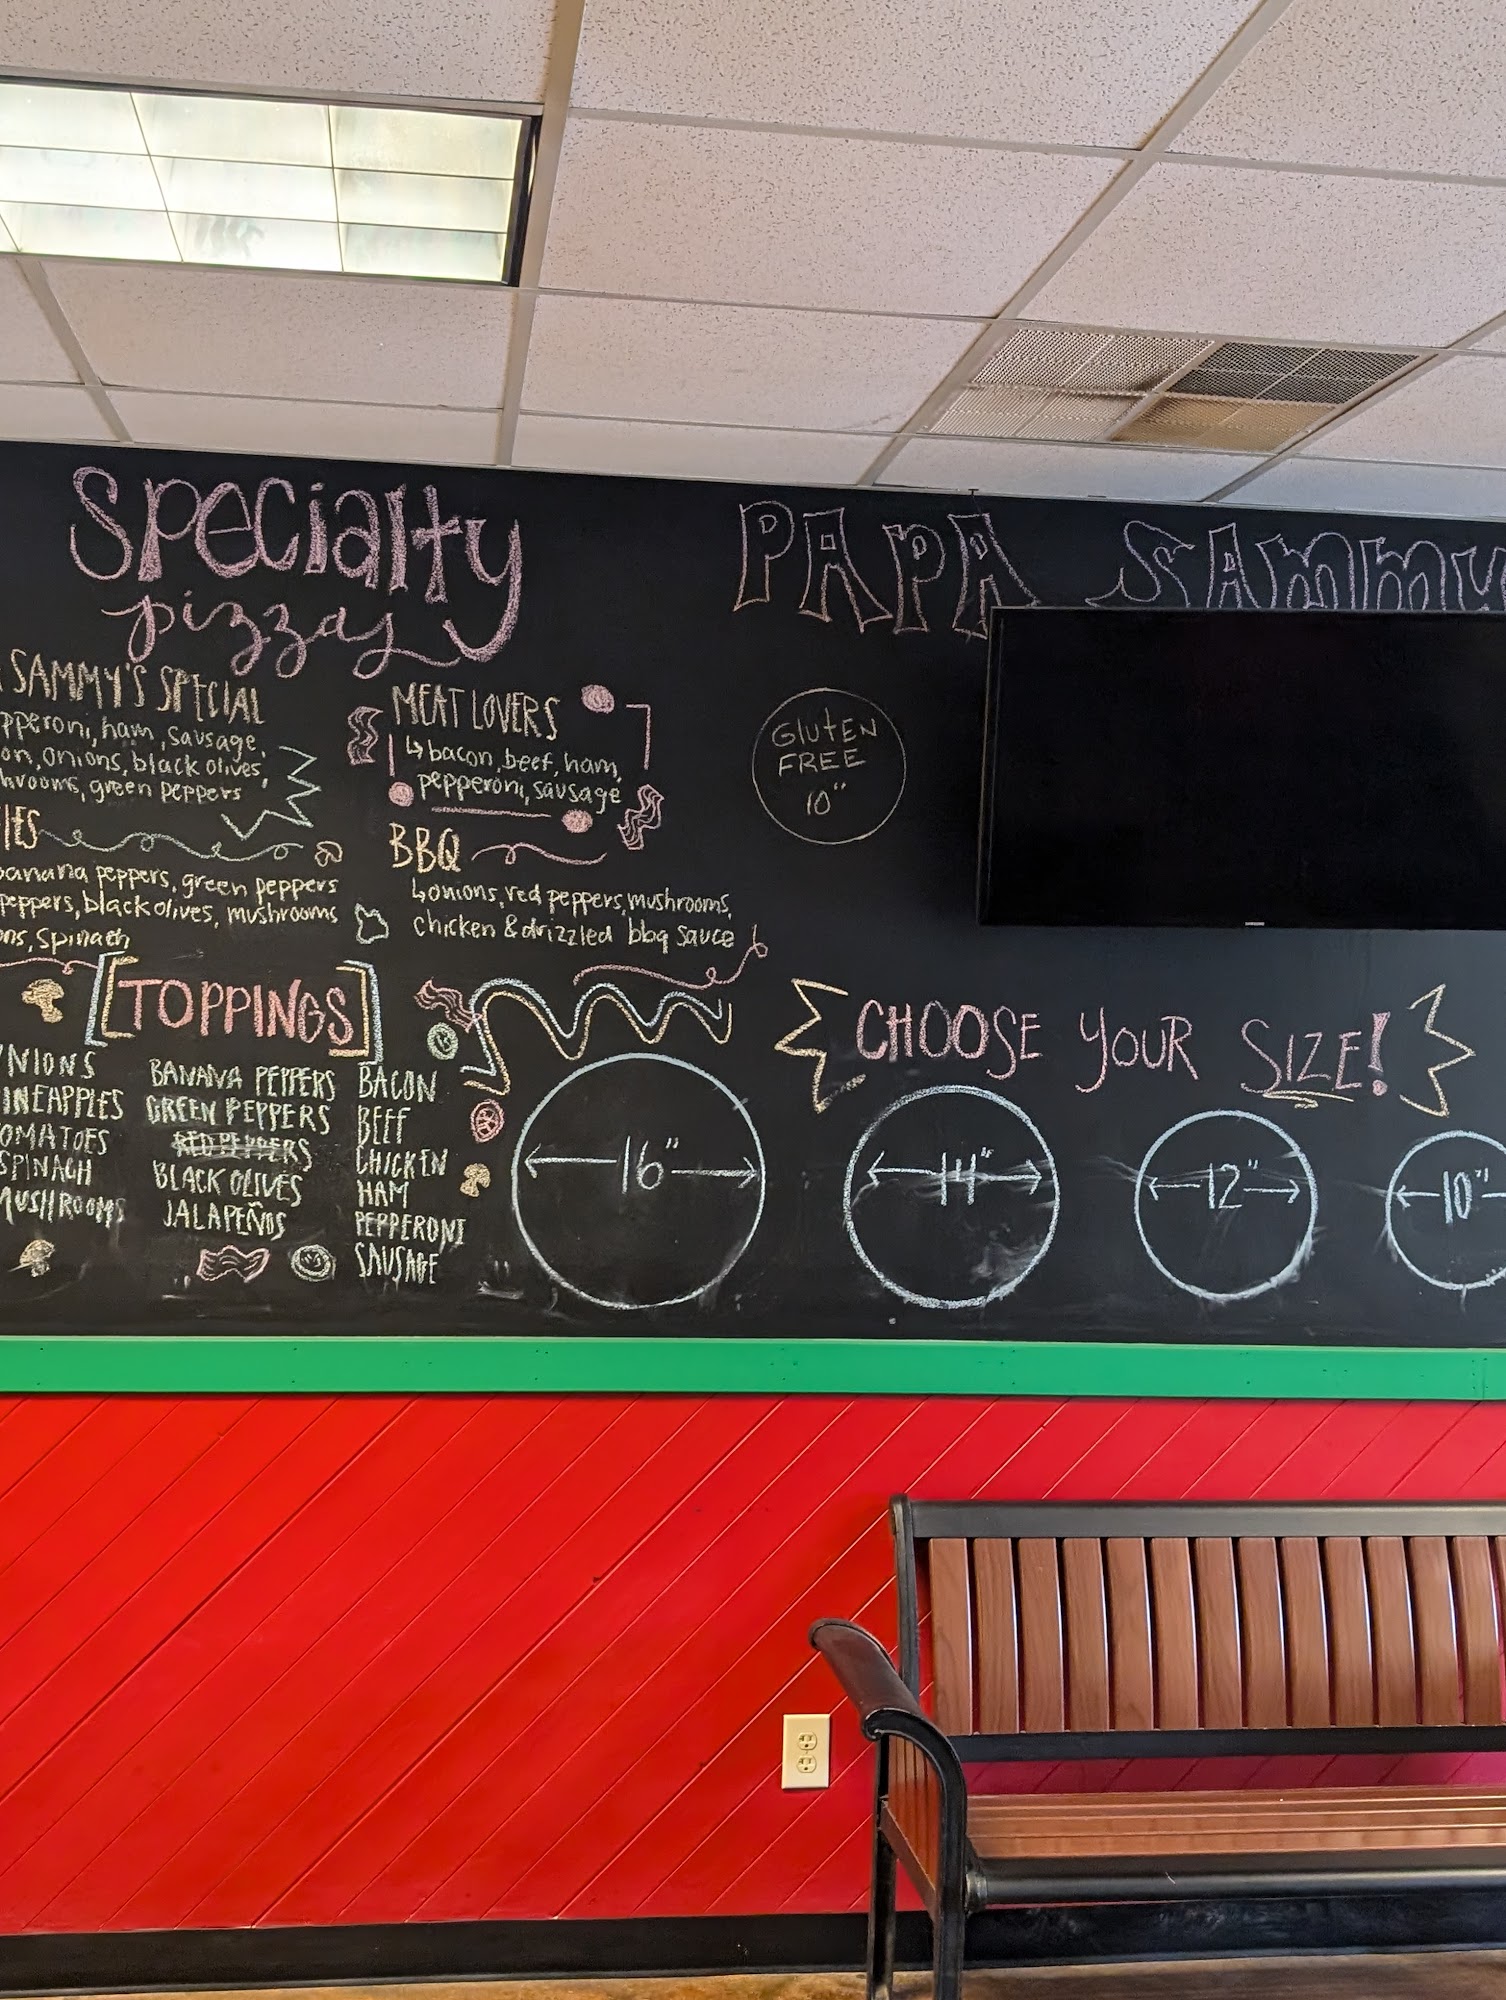 Specialty
pizzas
SAMMY'S SPECIAL
pperoni, ham, sausage,
on, onions, black olives,
hrooms, green peppers
IES
banana peppers, green peppers
peppers, black olives, mushrooms
ons, spinach
MEAT LOVERS
↳ bacon, beef, ham,
pepperoni, sausage
BBQ
↳ onions, red peppers, mushrooms,
chicken & drizzled bbq sauce
[TOPPINGS]
ONIONS
INEAPPLES
OMATOES
SPINACH
MUSHROOMS
BANANA PEPPERS
GREEN PEPPERS
RED PEPPERS
BLACK OLIVES
JALAPEÑOS
BACON
BEEF
CHICKEN
HAM
PEPPERONI
SAUSAGE
PAPA SAMMY
GLUTEN
FREE
10"
CHOOSE YOUR SIZE!
16"
14"
12"
10"